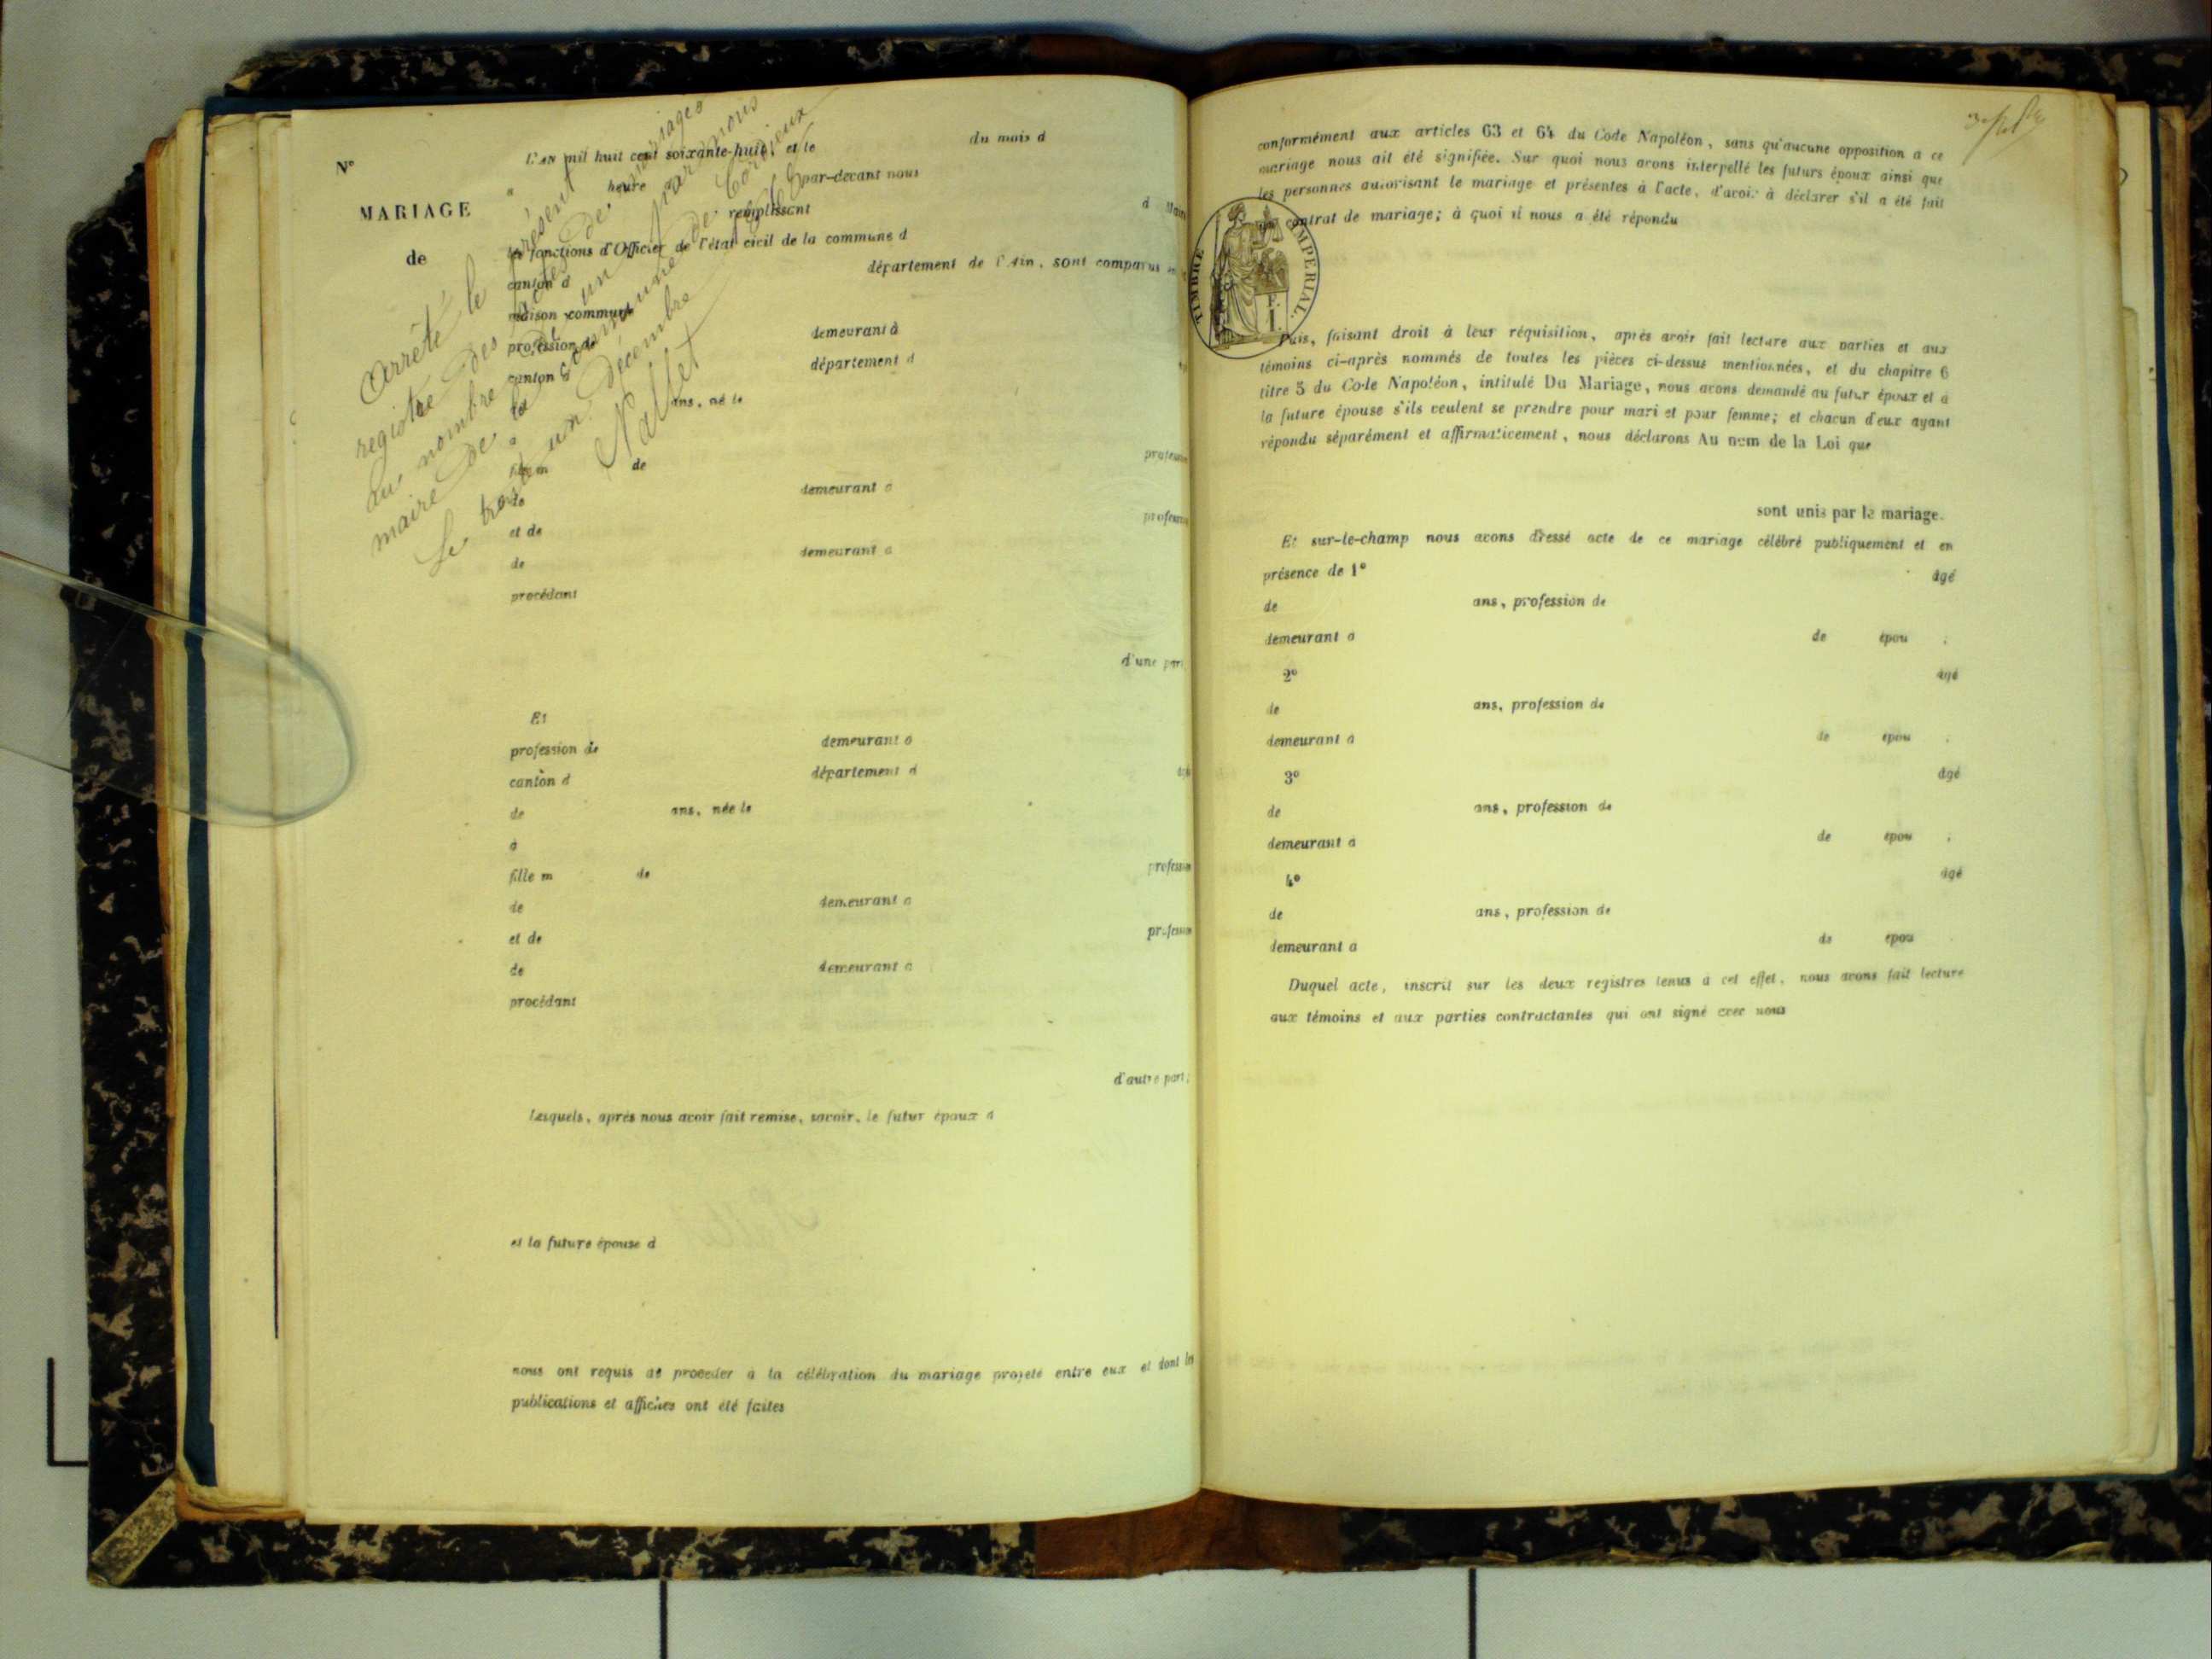 N°
MARIAGE
de
Arrêté le présent
registre des actes de mariages
au nombre de un par nous
maire de la commune de Corzieux
Le trente un décembre 1868
Nallet
L'AN mil huit cent soixante-huit, et le du mois d
a heure par-devant nous
remplissant d Maire
les fonctions d'Officier de l'état civil de la commune d
canton d département de l'Ain, sont comparus en la
maison commune
profession de demeurant à
canton d département d
ans, né le
à
fils m de profession
de demeurant à
et de profession
de demeurant à
procédant
d'une part
Et
profession de demeurant à
canton d département d âgé
de ans, née le
à
fille m de profession
de demeurant à
et de profession
de demeurant à
procédant
d'autre part;
Lesquels, après nous avoir fait remise, savoir, le futur époux d
et la future épouse d
nous ont requis de procéder à la célébration du mariage projeté entre eux et dont les
publications et affiches ont été faites
conformément aux articles 63 et 64 du Code Napoléon, sans qu'aucune opposition à ce
mariage nous ait été signifiée. Sur quoi nous avons interpellé les futurs époux ainsi que
les personnes autorisant le mariage et présentes à l'acte, d'avoir à déclarer s'il a été fait
contrat de mariage; à quoi il nous a été répondu
TIMBRE IMPERIAL.
Puis, faisant droit à leur réquisition, après avoir fait lecture aux parties et aux
témoins ci-après nommés de toutes les pièces ci-dessus mentionnées, et du chapitre 6
titre 5 du Code Napoléon, intitulé Du Mariage, nous avons demandé au futur époux et à
la future épouse s'ils veulent se prendre pour mari et pour femme; et chacun d'eux ayant
répondu séparément et affirmativement, nous déclarons Au nom de la Loi que
sont unis par le mariage.
Et sur-le-champ nous avons dressé acte de ce mariage célébré publiquement et en
présence de 1° âgé
de ans, profession de
demeurant à de épou ;
2° âgé
de ans, profession de
demeurant à de épou ;
3° âgé
de ans, profession de
demeurant à de épou ;
4° âgé
de ans, profession de
demeurant à de épou
Duquel acte, inscrit sur les deux registres tenus à cet effet, nous avons fait lecture
aux témoins et aux parties contractantes qui ont signé avec nous